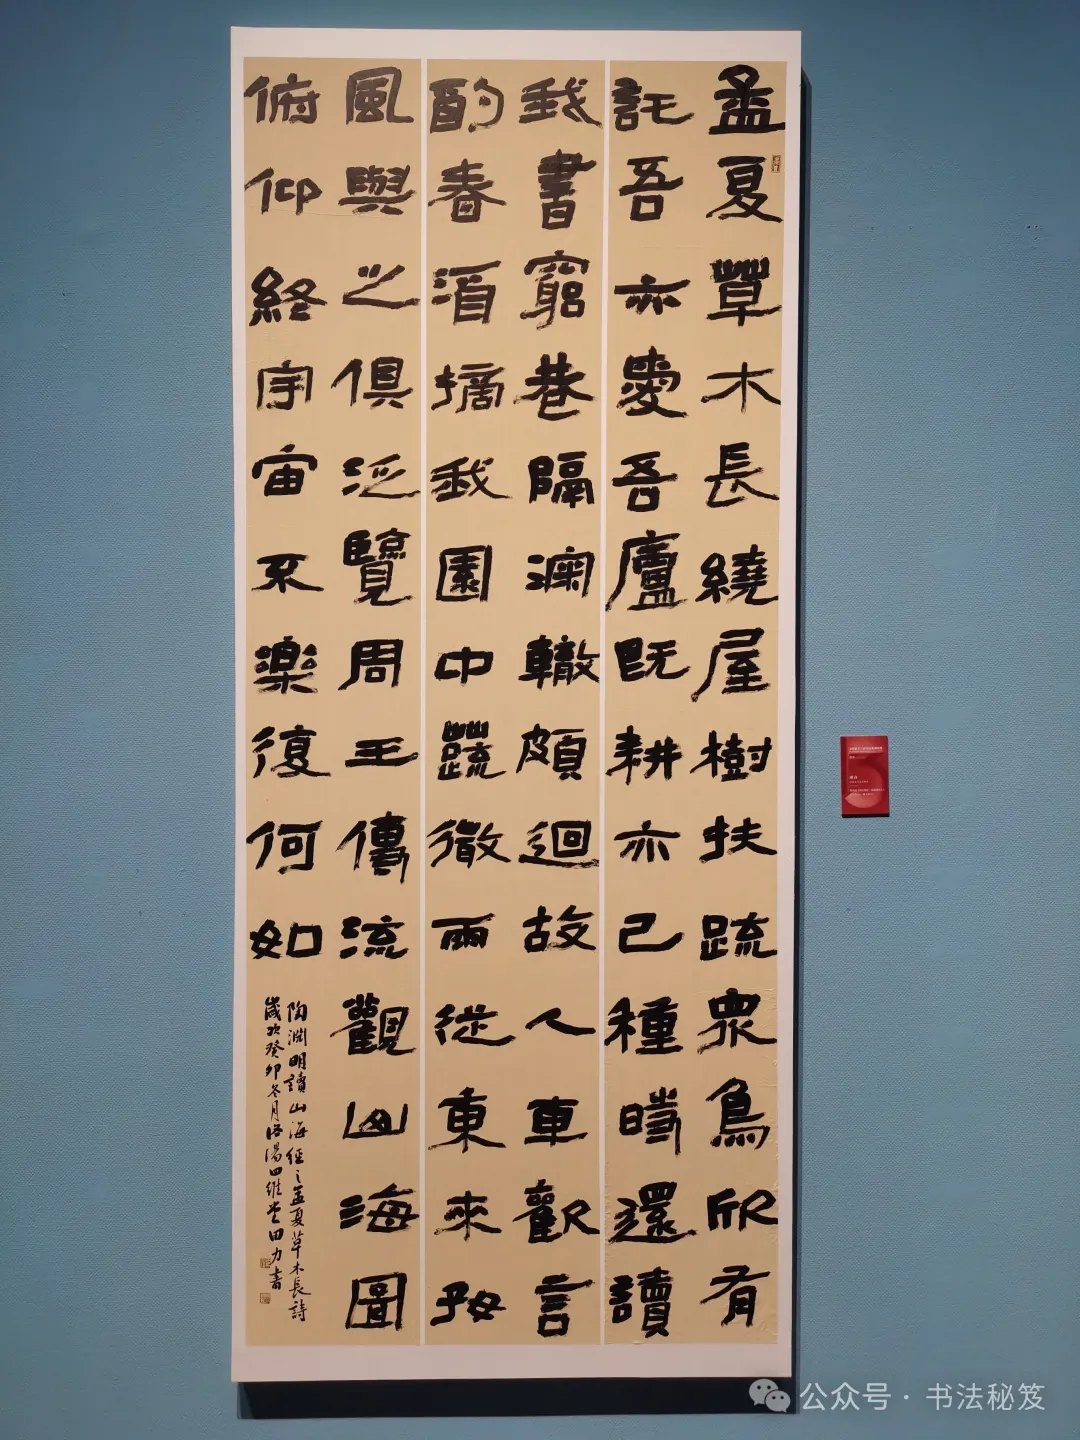 孟夏草木長繞屋樹扶疏衆鳥欣有
託吾亦愛吾廬既耕亦已種時還讀
我書窮巷隔深轍頗迴故人車歡言
酌春酒摘我園中蔬微雨從東來好
風與之俱泛覽周王傳流觀山海圖
俯仰終宇宙不樂復何如
陶淵明讀山海經之孟夏草木長詩
歲次癸卯冬月洛陽四維堂田力書
公众号·书法秘笈